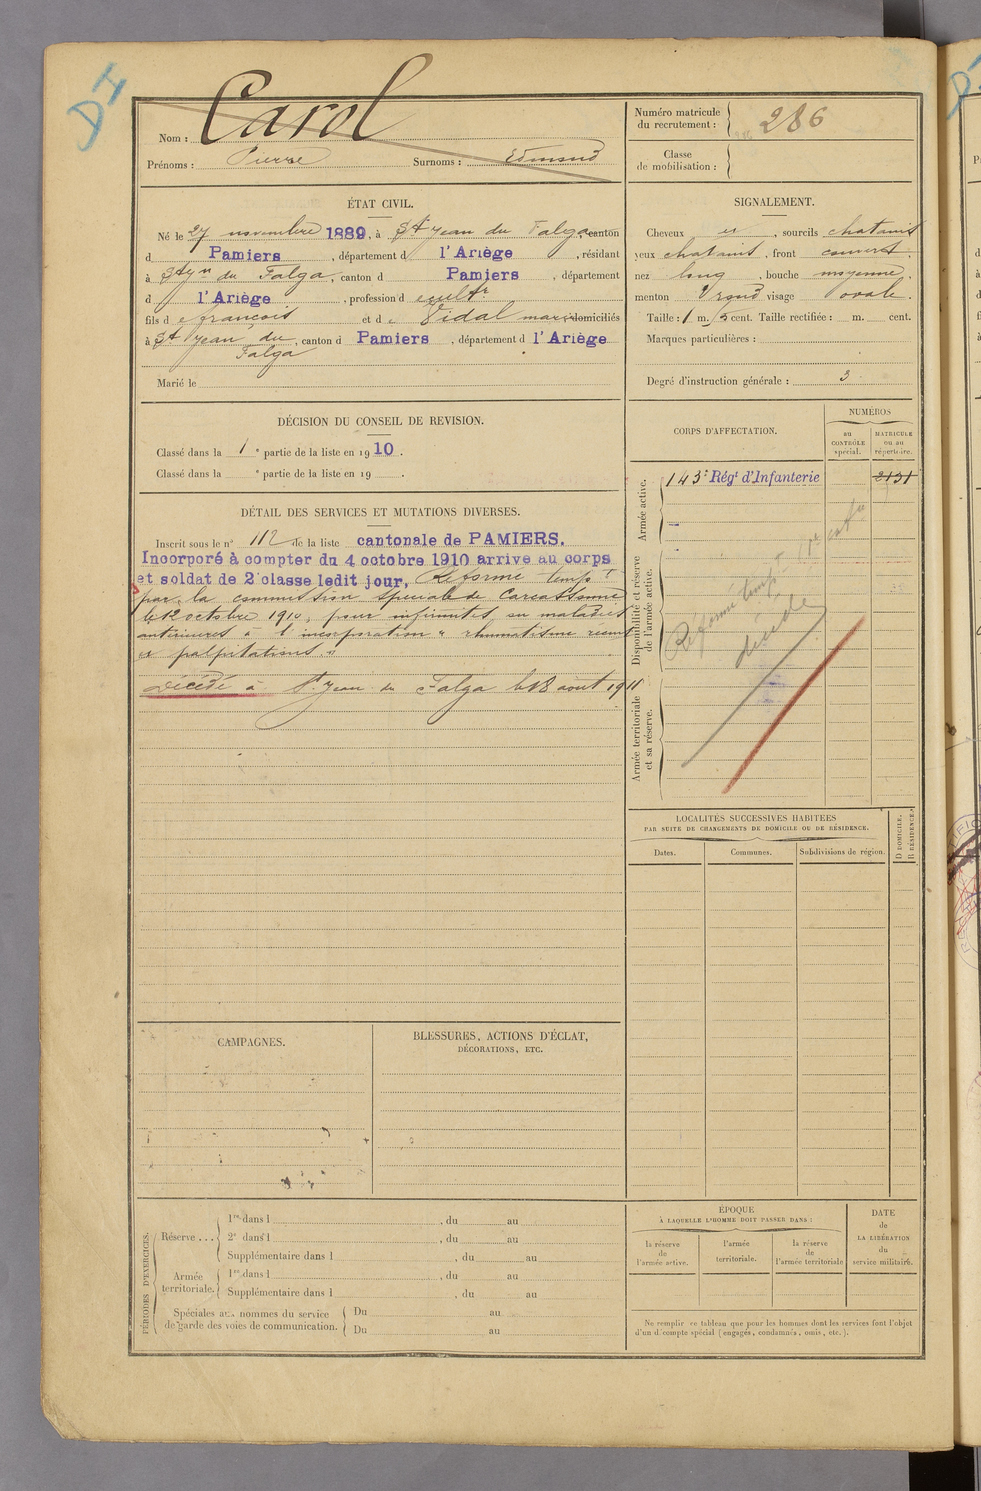 DI
Nom : Carol
Prénoms : Pierre Surnoms : Edmond
Numéro matricule du recrutement : 286
Classe de mobilisation :
ÉTAT CIVIL.
Né le 27 novembre 1889, à St Jean du Falga, canton
d Pamiers, département d l'Ariège, résidant
à St Jn du Falga, canton d Pamiers, département
d l'Ariège, profession d cultr
fils d e françois et d e Vidal marie domiciliés
à St Jean du Falga, canton d Pamiers, département d l'Ariège
Marié le
SIGNALEMENT.
Cheveux et, sourcils chatains
yeux chatains, front couvert,
nez long, bouche moyenne,
menton rond visage ovale.
Taille : 1 m. cent. Taille rectifiée : m. cent.
Marques particulières :
Degré d'instruction générale : 3
DÉCISION DU CONSEIL DE REVISION.
Classé dans la 1 e partie de la liste en 1910.
Classé dans la e partie de la liste en 19 .
DÉTAIL DES SERVICES ET MUTATIONS DIVERSES.
Inscrit sous le n° 112 de la liste cantonale de PAMIERS.
Incorporé à compter du 4 octobre 1910 arrive au corps
et soldat de 2e classe ledit jour, Réformé tempt
par la commission spéciale de Carcassonne
le 12 octobre 1910, pour infirmités ou maladies
antérieures à l'incorporation "rhumatisme récent
et palpitations"
Décédé à St Jean du Falga le 18 aout 1911
CORPS D'AFFECTATION.
NUMÉROS
au CONTRÔLE spécial.
MATRICULE ou au répertoire.
Armée active.
143e Régt d'Infanterie 2131
Disponibilité et réserve de l'armée active.
Réformé tempt
décédé
Armée territoriale et sa réserve.
LOCALITÉS SUCCESSIVES HABITÉES
PAR SUITE DE CHANGEMENTS DE DOMICILE OU DE RÉSIDENCE.
Dates. Communes. Subdivisions de région.
D DOMICILE. R RÉSIDENCE.
CAMPAGNES.
BLESSURES, ACTIONS D'ÉCLAT,
DÉCORATIONS, ETC.
PÉRIODES D'EXERCICES.
Réserve ...
1re dans l , du au
2e dans l , du au
Supplémentaire dans l , du au
Armée territoriale.
1re dans l , du au
Supplémentaire dans l , du au
Spéciales aux hommes du service de garde des voies de communication.
Du au
Du au
ÉPOQUE
À LAQUELLE L'HOMME DOIT PASSER DANS :
la réserve de l'armée active.
l'armée territoriale.
la réserve de l'armée territoriale
DATE de LA LIBÉRATION du service militaire.
Ne remplir ce tableau que pour les hommes dont les services font l'objet
d'un décompte spécial (engagés, condamnés, omis, etc.).